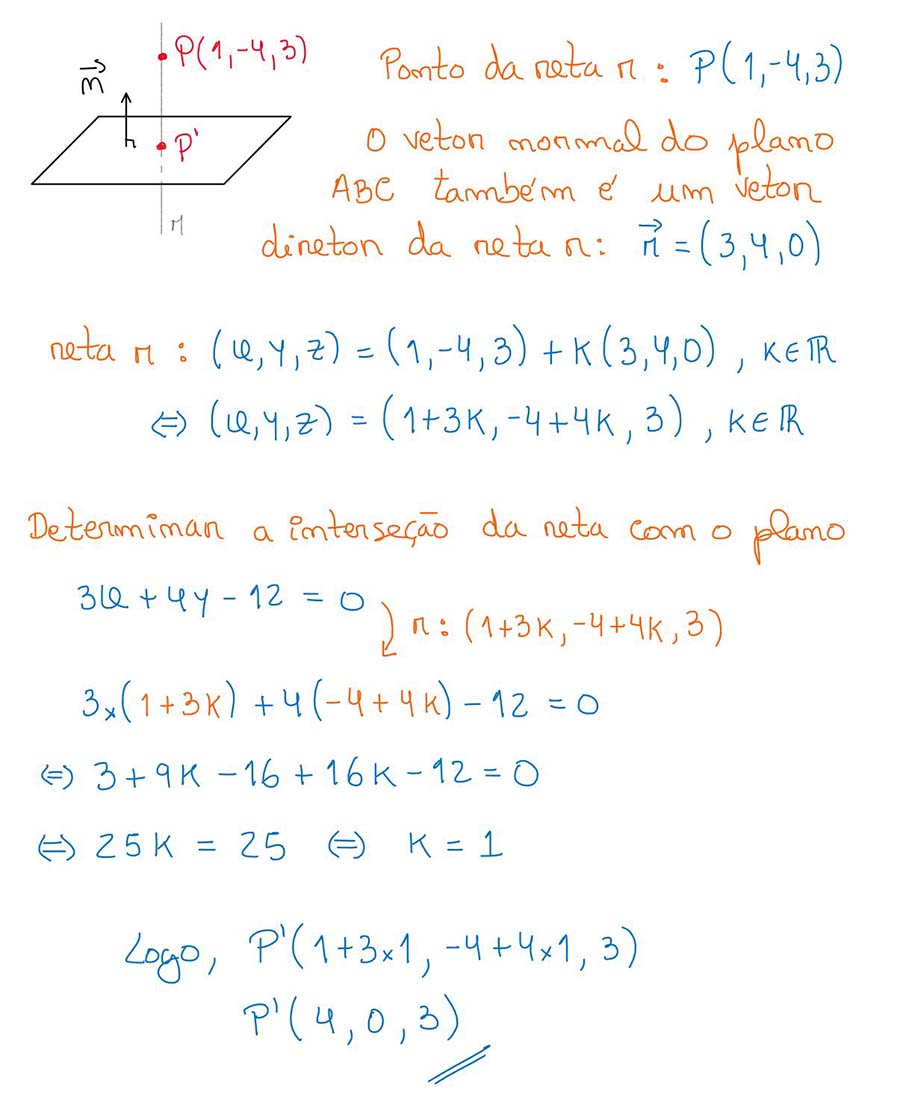 P(1,-4,3)
n⃗
P'
r
Ponto da reta r : P(1,-4,3)
O vetor normal do plano
ABC também é um vetor
diretor da reta r: r⃗ = (3,4,0)
reta r : (x,y,z) = (1,-4,3) + K(3,4,0) , K∈ℝ
⇔ (x,y,z) = (1+3K,-4+4K,3) , K∈ℝ
Determinar a interseção da reta com o plano
3x + 4y - 12 = 0
r: (1+3K,-4+4K,3)
3×(1+3K) + 4(-4+4K) - 12 = 0
⇔ 3 + 9K - 16 + 16K - 12 = 0
⇔ 25K = 25 ⇔ K = 1
Logo, P'(1+3×1, -4+4×1, 3)
P'(4,0,3)